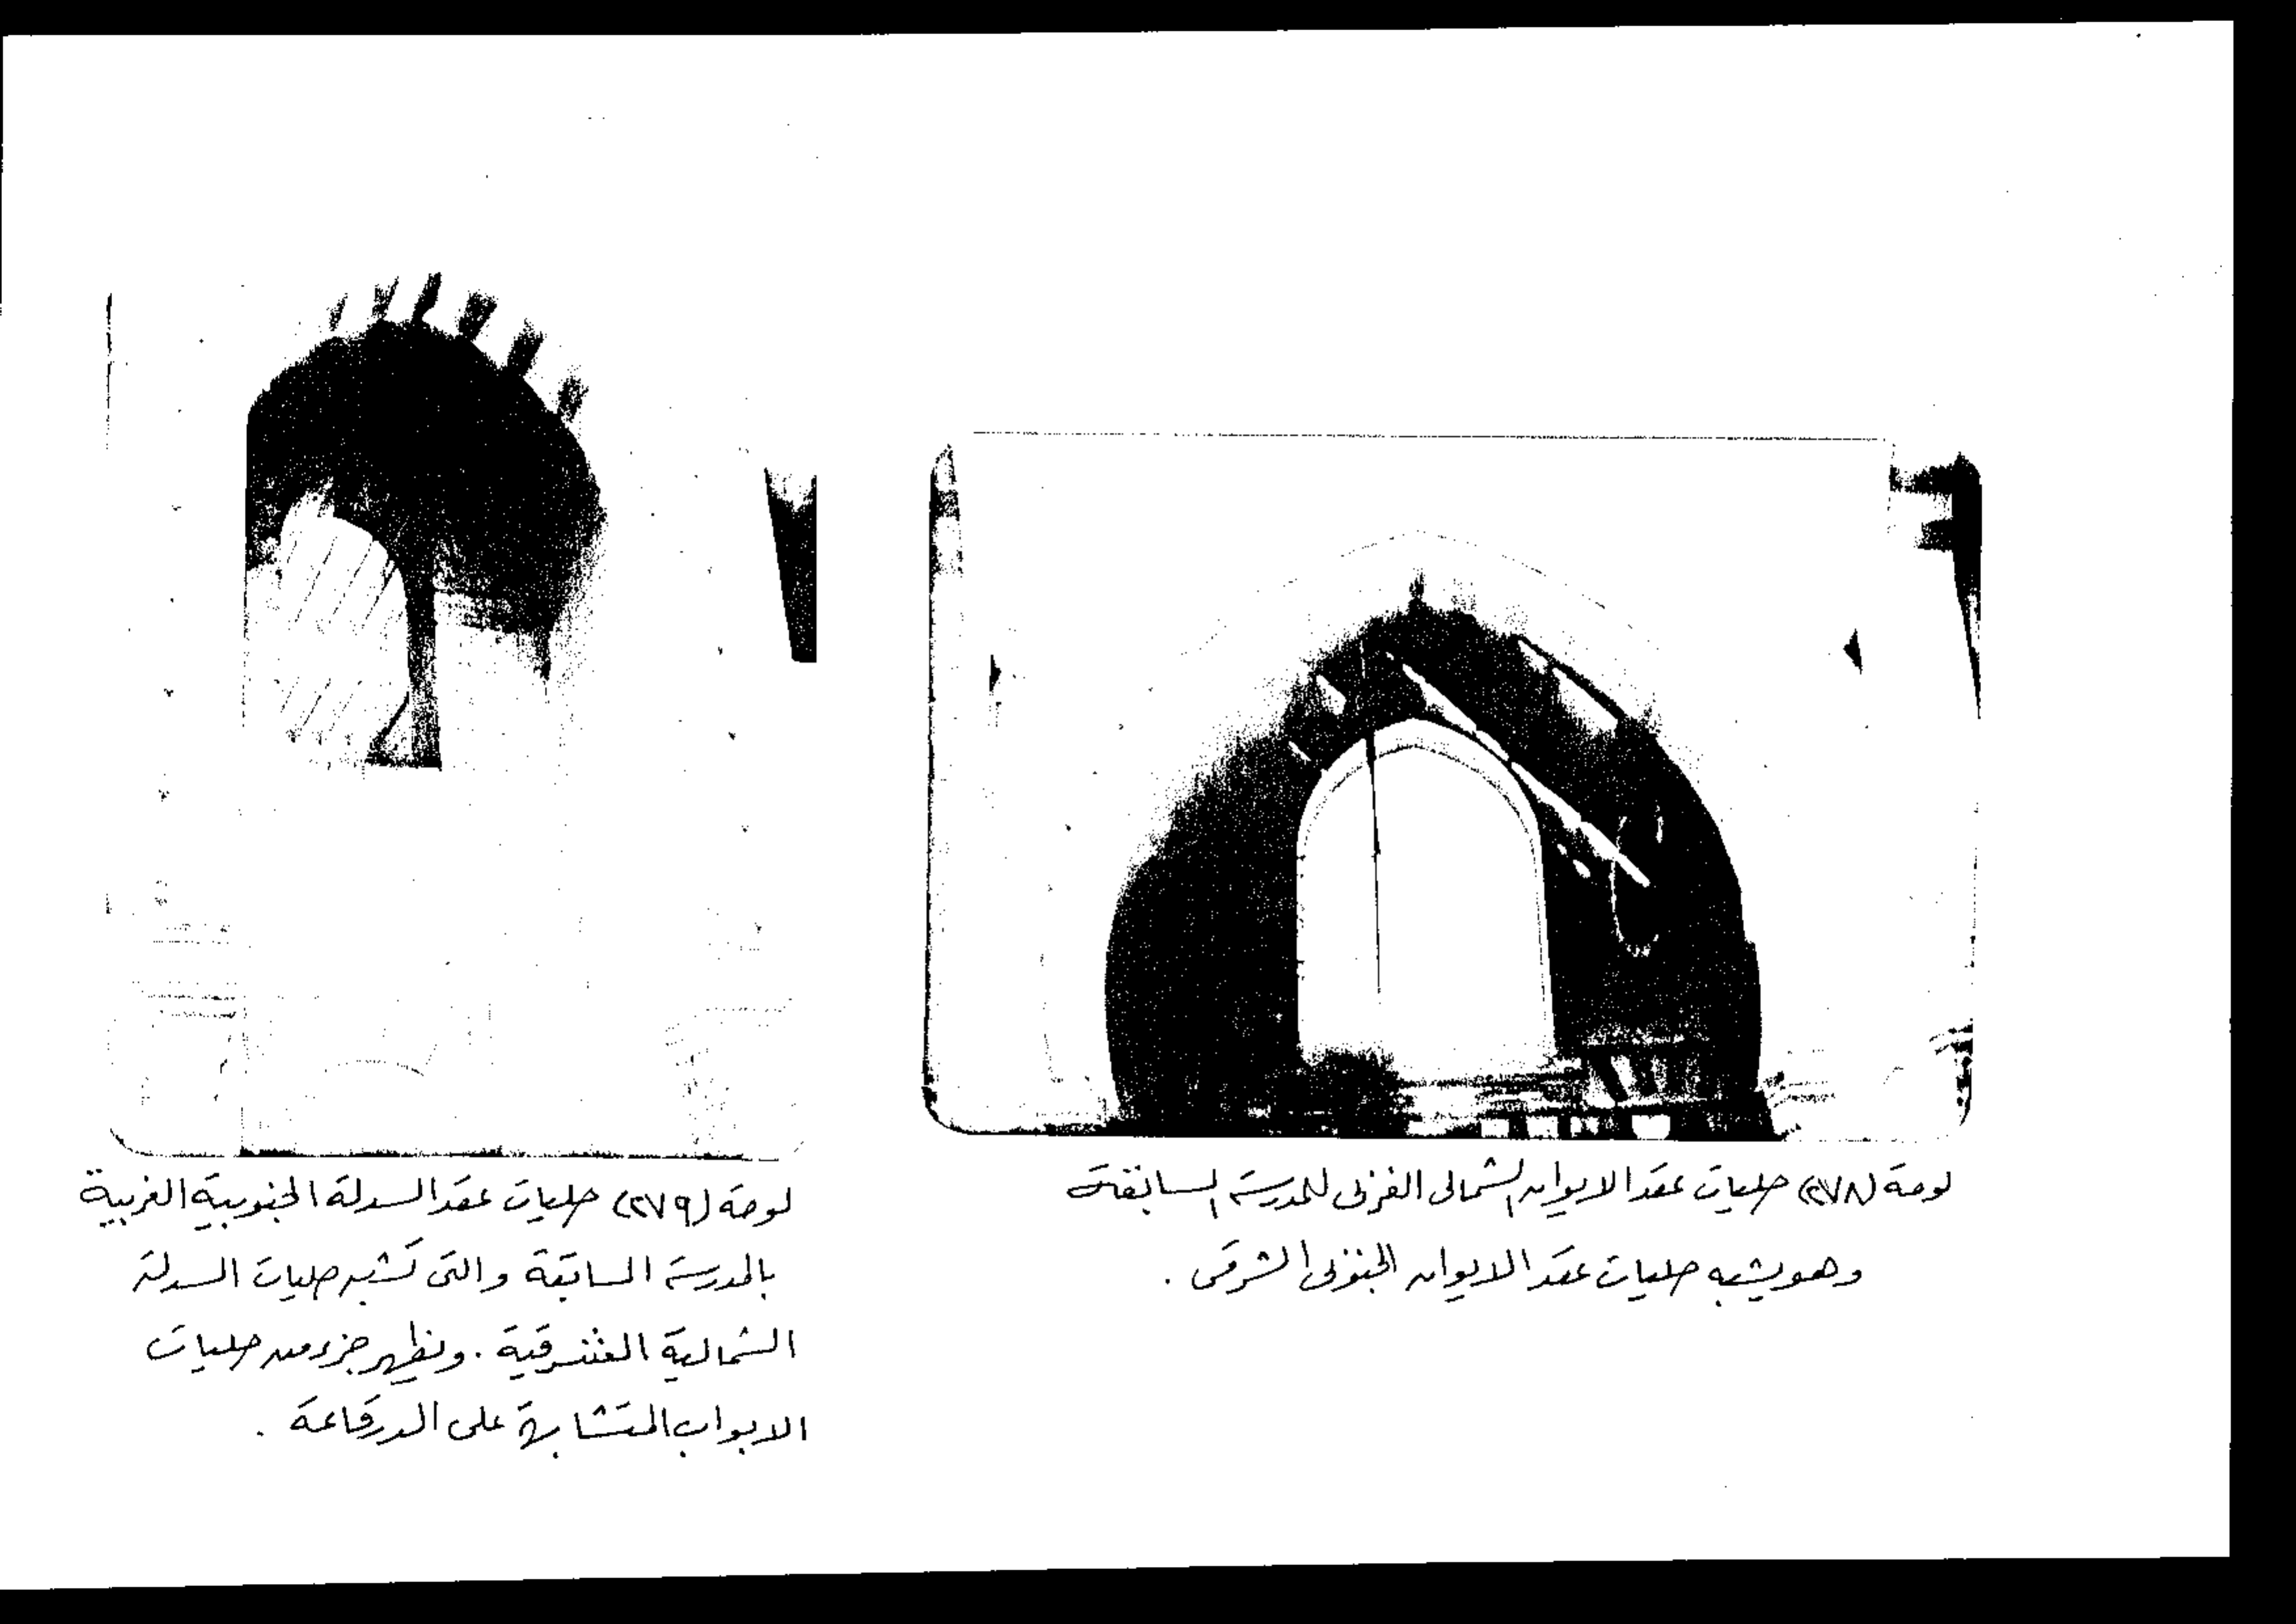 لوحة (٢٧٨) حليات عقد الايوان الشمالى الغربى للمدرسة السابقة
وهو يشبه حليات عقد الايوان الجنوبى الشرقى .
لوحة (٢٧٩) حليات عقد السدلة الجنوبية الغربية
بالمدرسة السابقة والتى تشبه حليات السدلة
الشمالية الشرقية . ويظهر جزء من حليات
الابواب المتشابهة على الدرقاعة .